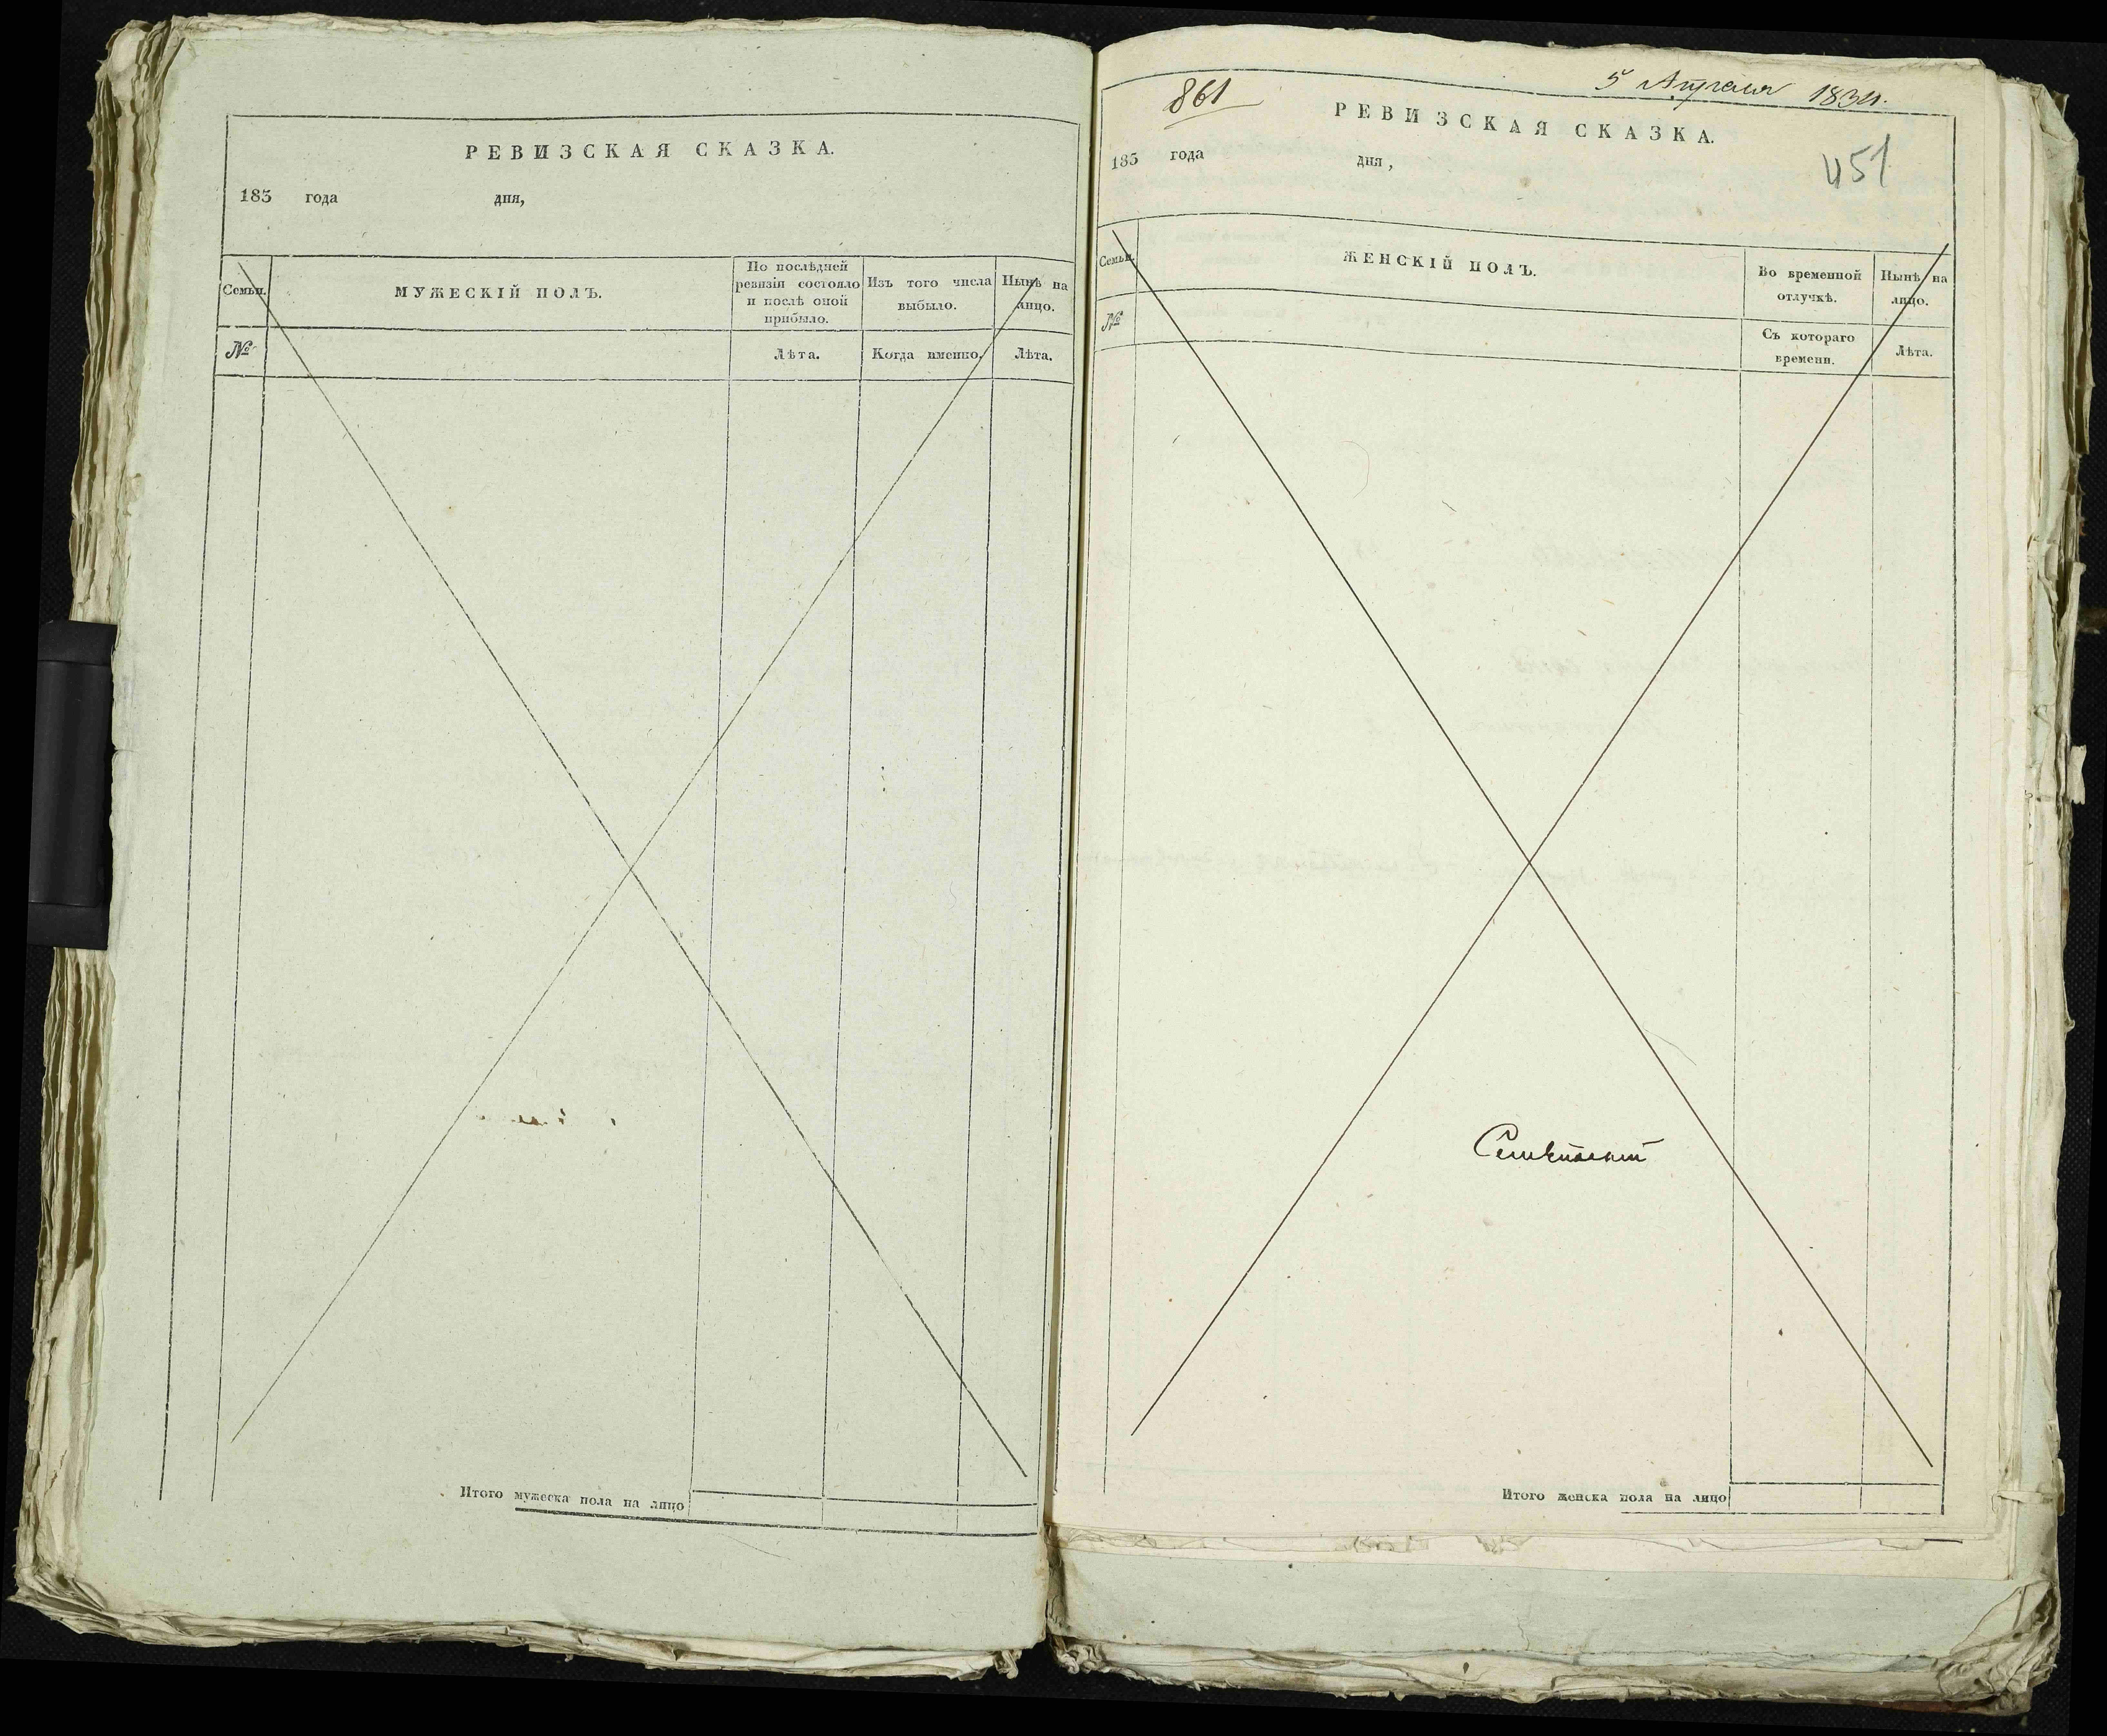 РЕВИЗСКАЯ СКАЗКА.
183 года дня,
Семьи.
МУЖЕСКІЙ ПОЛЪ.
По послѣдней
ревизіи состояло
и послѣ оной
прибыло.
Изъ того числа
выбыло.
Нынѣ на
лицо.
№
Лѣта.
Когда именно.
Лѣта.
Итого мужеска пола на лицо
861
5 Апреля 1834.
РЕВИЗСКАЯ СКАЗКА.
183 года дня,
451
Семьи.
ЖЕНСКІЙ ПОЛЪ.
Во временной
отлучкѣ.
Нынѣ на
лицо.
№
Съ котораго
времени.
Лѣта.
Итого женска пола на лицо